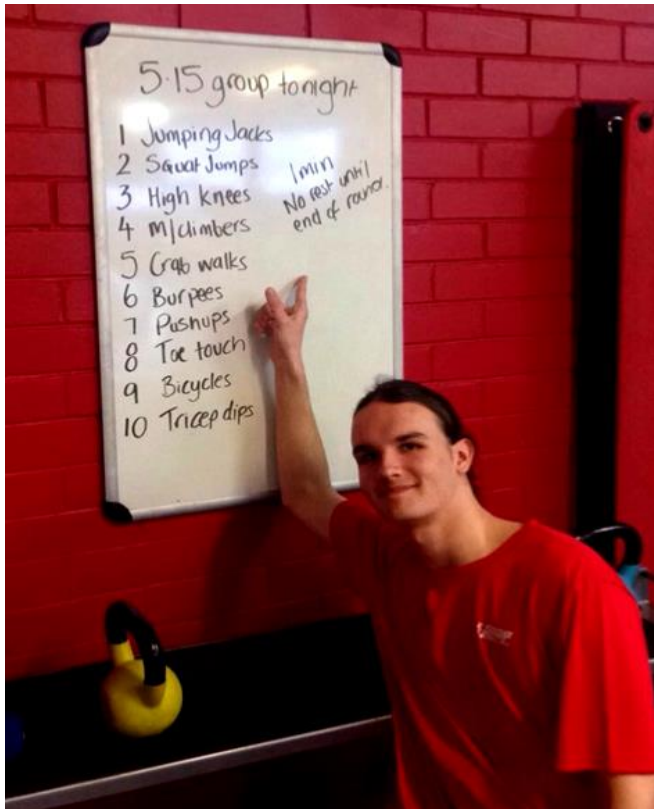 5.15 group tonight
1 Jumping Jacks
2 Squat Jumps
3 High knees
4 M/climbers
5 Crab walks
6 Burpees
7 Pushups
8 Toe touch
9 Bicycles
10 Tricep dips
1min
No rest until
end of round.